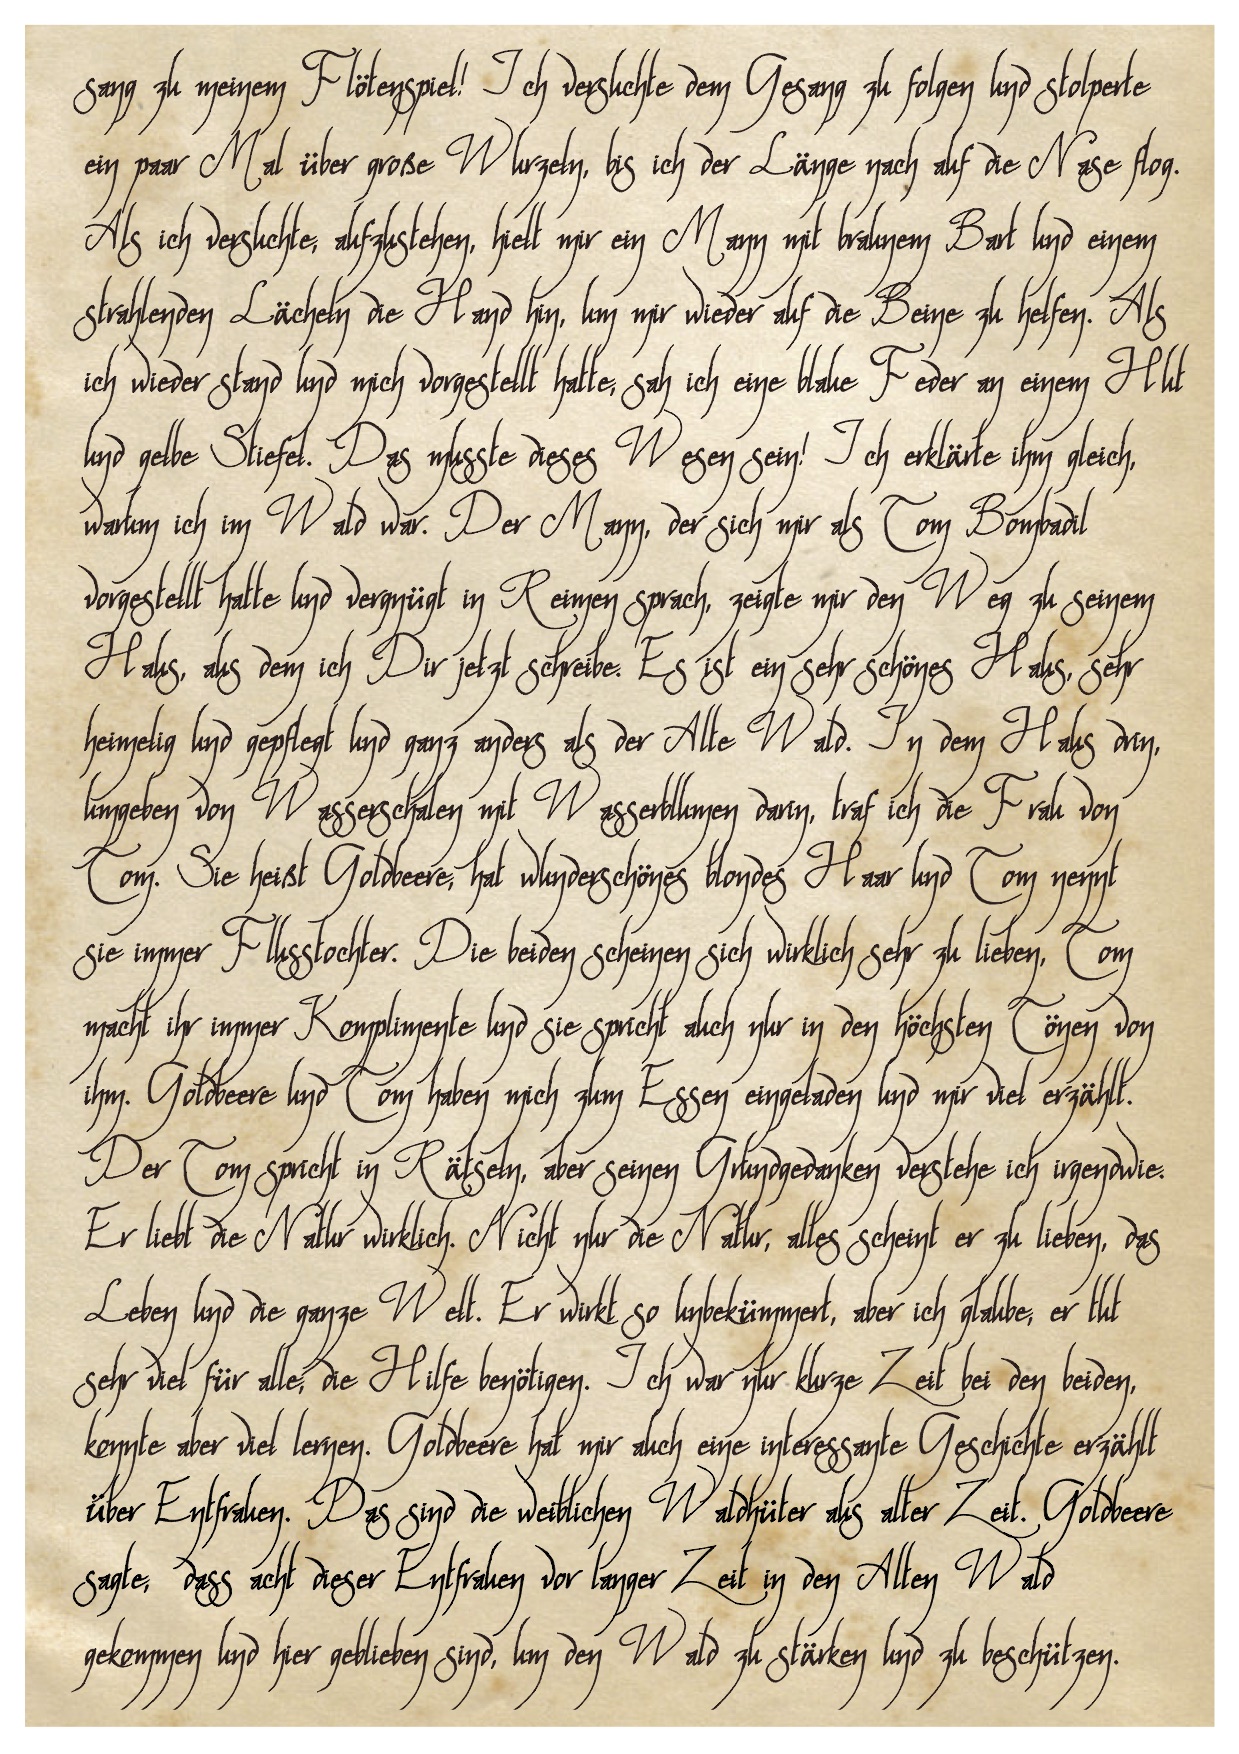 sang zu meinem Flötenspiel! Ich versuchte dem Gesang zu folgen und stolperte
ein paar Mal über große Wurzeln, bis ich der Länge nach auf die Nase flog.
Als ich versuchte, aufzustehen, hielt mir ein Mann mit braunem Bart und einem
strahlenden Lächeln die Hand hin, um mir wieder auf die Beine zu helfen. Als
ich wieder stand und mich vorgestellt hatte, sah ich eine blaue Feder an einem Hut
und gelbe Stiefel. Das musste dieses Wesen sein! Ich erklärte ihm gleich,
warum ich im Wald war. Der Mann, der sich mir als Tom Bombadil
vorgestellt hatte und vergnügt in Reimen sprach, zeigte mir den Weg zu seinem
Haus, aus dem ich Dir jetzt schreibe. Es ist ein sehr schönes Haus, sehr
heimelig und gepflegt und ganz anders als der Alte Wald. In dem Haus drin,
umgeben von Wasserschalen mit Wasserblumen darin, traf ich die Frau von
Tom. Sie heißt Goldbeere, hat wunderschönes blondes Haar und Tom nennt
sie immer Flusstochter. Die beiden scheinen sich wirklich sehr zu lieben, Tom
macht ihr immer Komplimente und sie spricht auch nur in den höchsten Tönen von
ihm. Goldbeere und Tom haben mich zum Essen eingeladen und mir viel erzählt.
Der Tom spricht in Rätseln, aber seinen Grundgedanken verstehe ich irgendwie.
Er liebt die Natur wirklich. Nicht nur die Natur, alles scheint er zu lieben, das
Leben und die ganze Welt. Er wirkt so unbekümmert, aber ich glaube, er tut
sehr viel für alle, die Hilfe benötigen. Ich war nur kurze Zeit bei den beiden,
konnte aber viel lernen. Goldbeere hat mir auch eine interessante Geschichte erzählt
über Entfrauen. Das sind die weiblichen Waldhüter aus alter Zeit. Goldbeere
sagte, dass acht dieser Entfrauen vor langer Zeit in den Alten Wald
gekommen und hier geblieben sind, um den Wald zu stärken und zu beschützen.